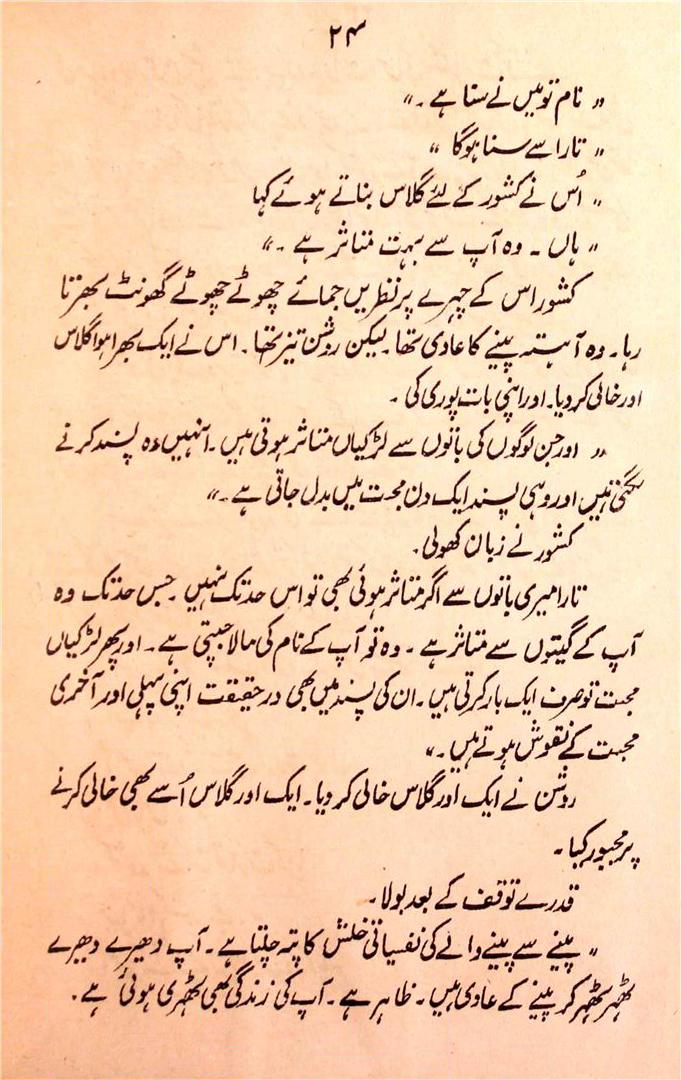 ۲۴
" نام تو میں نے سنا ہے ۔ "
" تارا سے سنا ہوگا "
" اُس نے کشور کے لئے گلاس بناتے ہوئے کہا
" ہاں ۔ وہ آپ سے بہت متاثر ہے ۔ "
کشور اس کے چہرے پر نظریں جمائے چھوٹے چھوٹے گھونٹ بھرتا
رہا ۔ وہ آہستہ پینے کا عادی تھا ۔ لیکن روشن تیز تھا ۔ اس نے ایک بھرا ہوا گلاس
اور خالی کر دیا ۔ اور اپنی بات پوری کی ۔
" اور جن لوگوں کی باتوں سے لڑکیاں متاثر ہوتی ہیں ۔ انہیں وہ پسند کرنے
لگتی ہیں اور وہی پسند ایک دن محبت میں بدل جاتی ہے ۔ "
کشور نے زبان کھولی ۔
تارا میری باتوں سے اگر متاثر ہوئی بھی تو اس حد تک نہیں ۔ جس حد تک وہ
آپ کے گیتوں سے متاثر ہے ۔ وہ تو آپ کے نام کی مالا جپتی ہے ۔ اور پھر لڑکیاں
محبت تو صرف ایک بار کرتی ہیں ۔ ان کی پسند میں بھی در حقیقت اپنی پہلی اور آخری
محبت کے نقوش ہوتے ہیں ۔ "
روشن نے ایک اور گلاس خالی کر دیا ۔ ایک اور گلاس اُسے بھی خالی کرنے
پر مجبور کیا ۔
قدرے توقف کے بعد بولا ۔
" پینے سے پینے والے کی نفسیاتی خلش کا پتہ چلتا ہے ۔ آپ دھیرے دھیرے
ٹھہر ٹھہر کر پینے کے عادی ہیں ۔ ظاہر ہے ۔ آپ کی زندگی بھی ٹھہری ہوئی ہے ۔